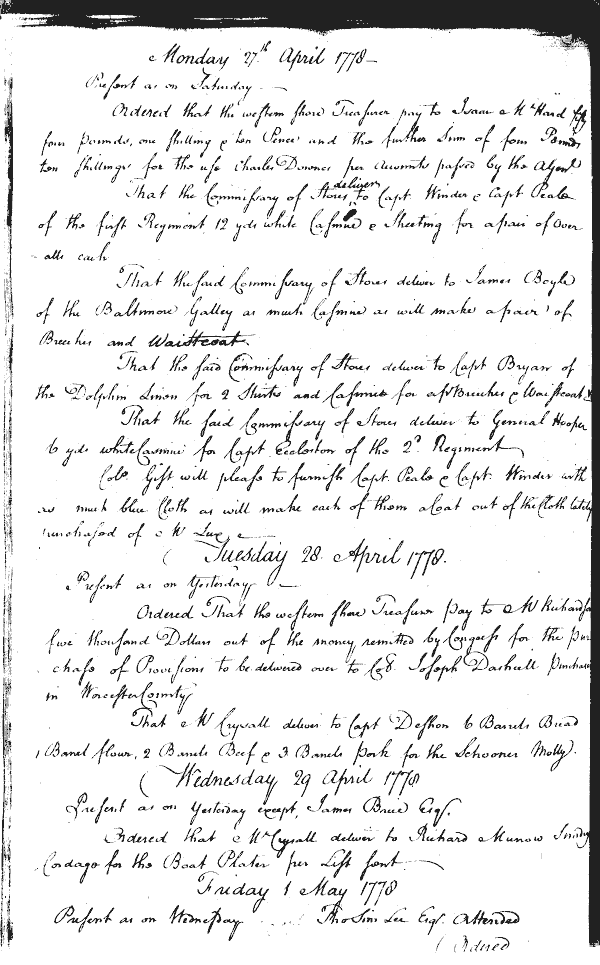 Monday 27th April 1778
Present as on Saturday
Ordered that the western shore Treasurer pay to Isaac McHard fifty
four Pounds, one shilling & ten Pence and the further Sum of four Pounds
ten shillings for the use Charles Downes per accounts passed by the Agent
deliver
That the Commissary of Stores, to Capt Winder & Capt Peale
of the first Regiment 12 yds white Casmire & Sheeting for a pair of Over
alls each
That the said Commissary of Stores deliver to James Boyle
of the Baltimore Galley as much Casmire as will make a pair of
Breeches and Waistcoat.
That the said Commissary of Stores deliver to Capt Bryan of
the Dolphin Linen for 2 Shirts and Casmire for a pr Breeches & Waistcoat
That the said Commissary of Stores deliver to General Hooper
6 yds white Casmire for Capt Eccleston of the 2d Regiment
Colo. Gist will please to furnish Capt. Peale & Capt. Winder with
as much blue Cloth as will make each of them a Coat out of the Cloth lately
purchased of Mr Lux
Tuesday 28 April 1778.
Present as on Yesterday
Ordered That the western shore Treasurer pay to Mr Richardson
five thousand Dollars out of the money remitted by Congress for the pur
chase of Provisions to be delivered over to Col. Joseph Dashiell Purchaser
in Worcester County
That Mr Crysall deliver to Capt Deshon 6 Barrels Bread
1 Barrel flour, 2 Barrels Beef & 3 Barrels pork for the Schooner Molly.
Wednesday 29 April 1778
Present as on Yesterday except, James Brice Esqr.
Ordered that Mr Crysall deliver to Richard Munow Sundry
Cordage for the Boat Plater per List sent
Friday 1 May 1778
Present as on Wednesday Tho Sim Lee Esqr. Attended
Ordered